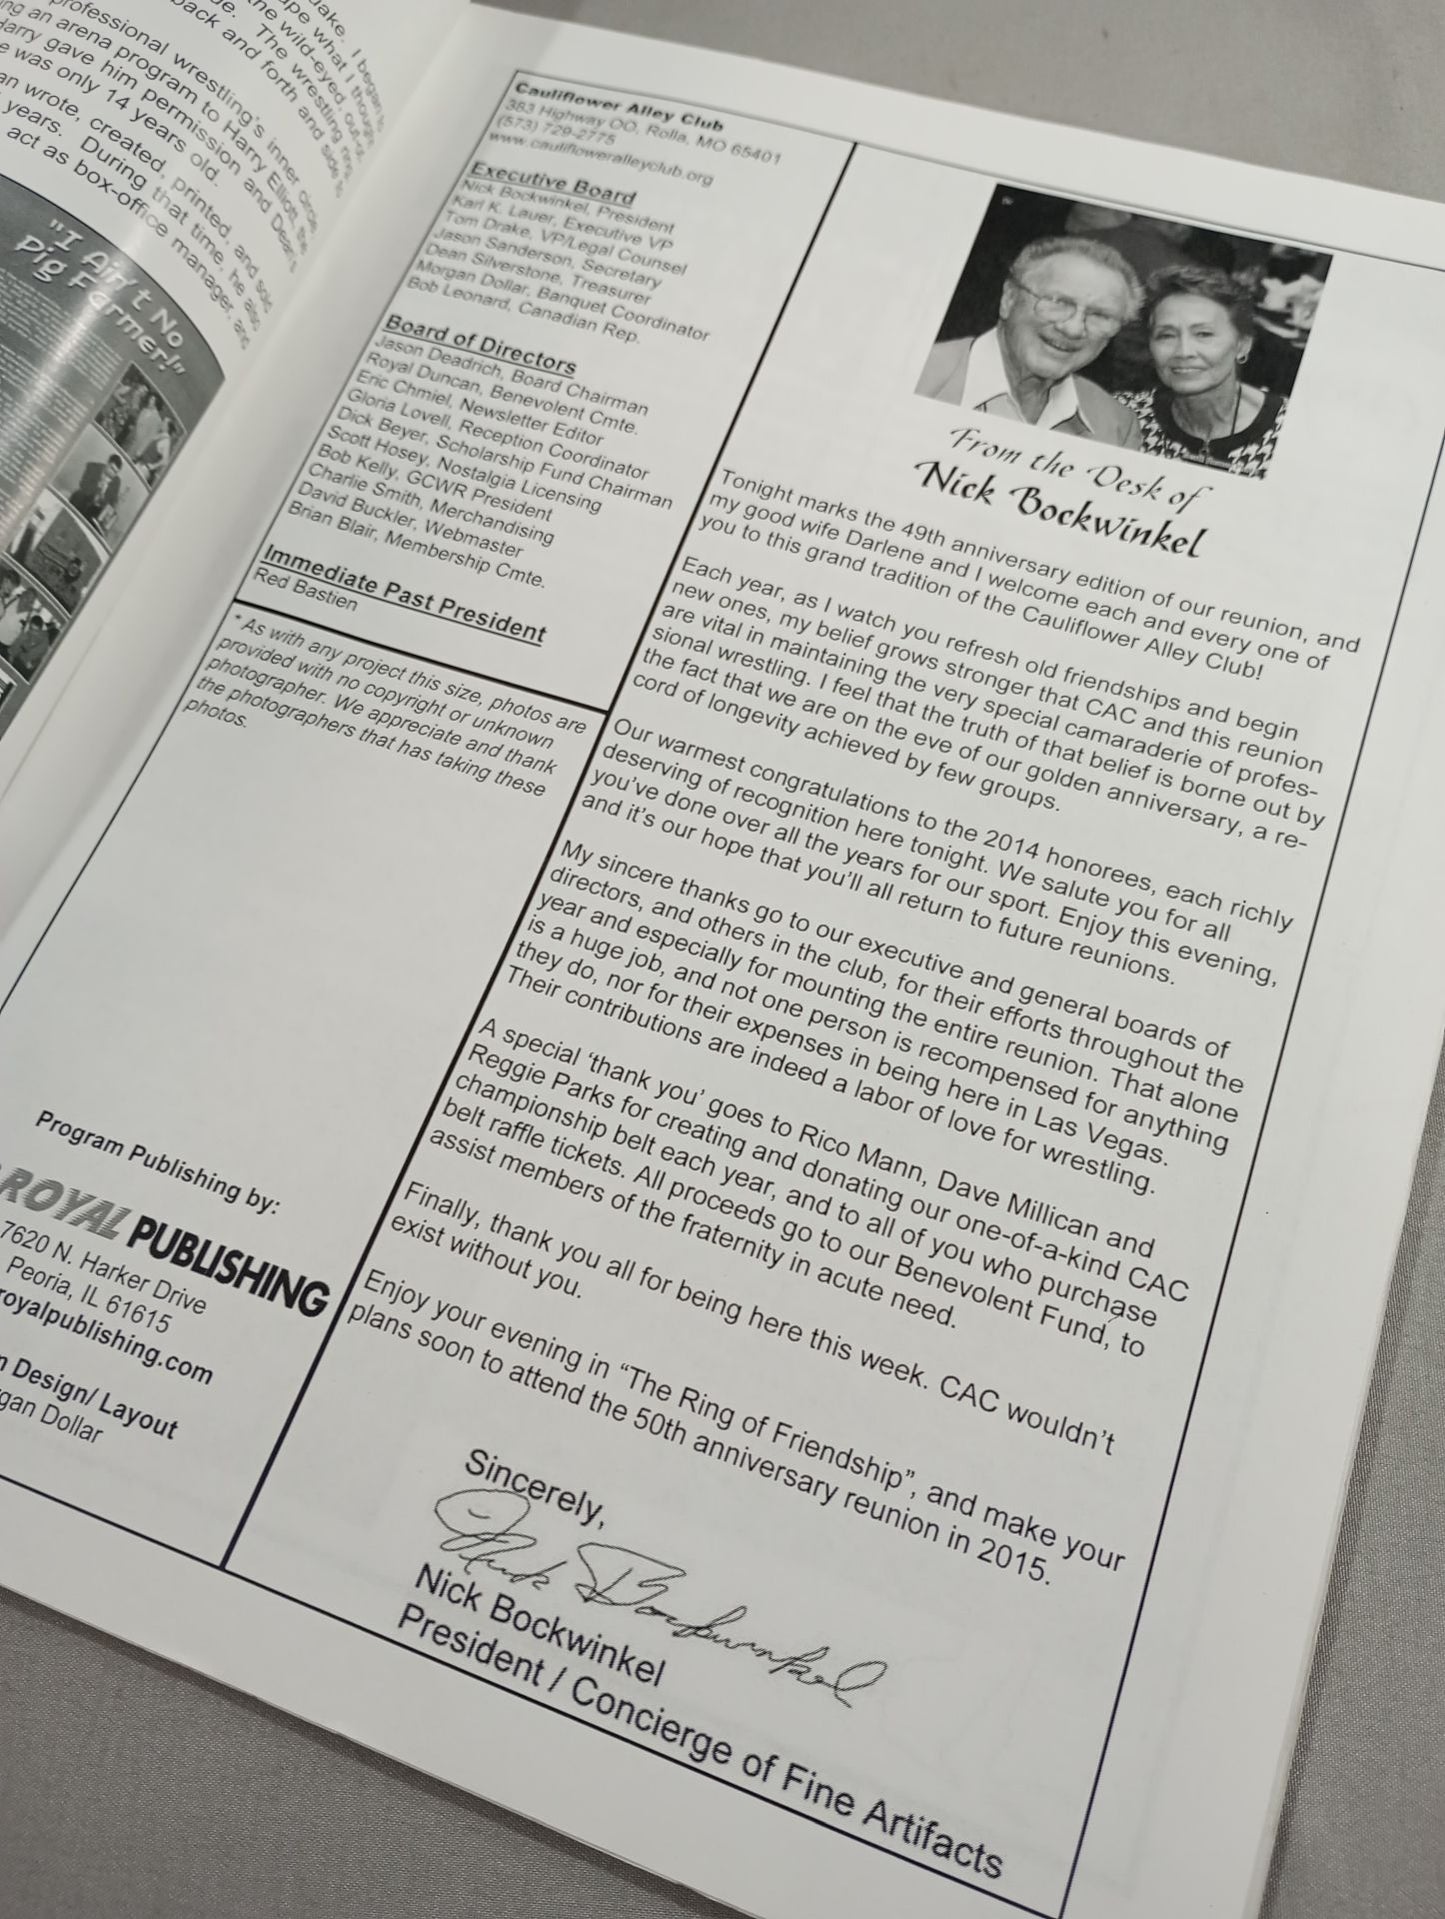 professional wrestling's inner circle.
an arena program to Harry Elliott, the
Harry gave him permission and Dean's
was only 14 years old.
wrote, created, printed, and sold
years. During that time, he also
act as box-office manager, and
"I Ain't No
Pig Farmer!"
Cauliflower Alley Club
383 Highway OO, Rolla, MO 65401
(573) 729-2775
www.caulifloweralleyclub.org
Executive Board
Nick Bockwinkel, President
Karl K. Lauer, Executive VP
Tom Drake, VP/Legal Counsel
Jason Sanderson, Secretary
Dean Silverstone, Treasurer
Morgan Dollar, Banquet Coordinator
Bob Leonard, Canadian Rep.
Board of Directors
Jason Deadrich, Board Chairman
Royal Duncan, Benevolent Cmte.
Eric Chmiel, Newsletter Editor
Gloria Lovell, Reception Coordinator
Dick Beyer, Scholarship Fund Chairman
Scott Hosey, Nostalgia Licensing
Bob Kelly, GCWR President
Charlie Smith, Merchandising
David Buckler, Webmaster
Brian Blair, Membership Cmte.
Immediate Past President
Red Bastien
* As with any project this size, photos are
provided with no copyright or unknown
photographer. We appreciate and thank
the photographers that has taking these
photos.
Program Publishing by:
ROYAL PUBLISHING
7620 N. Harker Drive
Peoria, IL 61615
royalpublishing.com
Design/ Layout
Dollar
From the Desk of
Nick Bockwinkel
Tonight marks the 49th anniversary edition of our reunion, and
my good wife Darlene and I welcome each and every one of
you to this grand tradition of the Cauliflower Alley Club!
Each year, as I watch you refresh old friendships and begin
new ones, my belief grows stronger that CAC and this reunion
are vital in maintaining the very special camaraderie of profes-
sional wrestling. I feel that the truth of that belief is borne out by
the fact that we are on the eve of our golden anniversary, a re-
cord of longevity achieved by few groups.
Our warmest congratulations to the 2014 honorees, each richly
deserving of recognition here tonight. We salute you for all
you've done over all the years for our sport. Enjoy this evening,
and it's our hope that you'll all return to future reunions.
My sincere thanks go to our executive and general boards of
directors, and others in the club, for their efforts throughout the
year and especially for mounting the entire reunion. That alone
is a huge job, and not one person is recompensed for anything
they do, nor for their expenses in being here in Las Vegas.
Their contributions are indeed a labor of love for wrestling.
A special 'thank you' goes to Rico Mann, Dave Millican and
Reggie Parks for creating and donating our one-of-a-kind CAC
championship belt each year, and to all of you who purchase
belt raffle tickets. All proceeds go to our Benevolent Fund, to
assist members of the fraternity in acute need.
Finally, thank you all for being here this week. CAC wouldn't
exist without you.
Enjoy your evening in “The Ring of Friendship”, and make your
plans soon to attend the 50th anniversary reunion in 2015.
Sincerely,
Nick Bockwinkel
Nick Bockwinkel
President / Concierge of Fine Artifacts